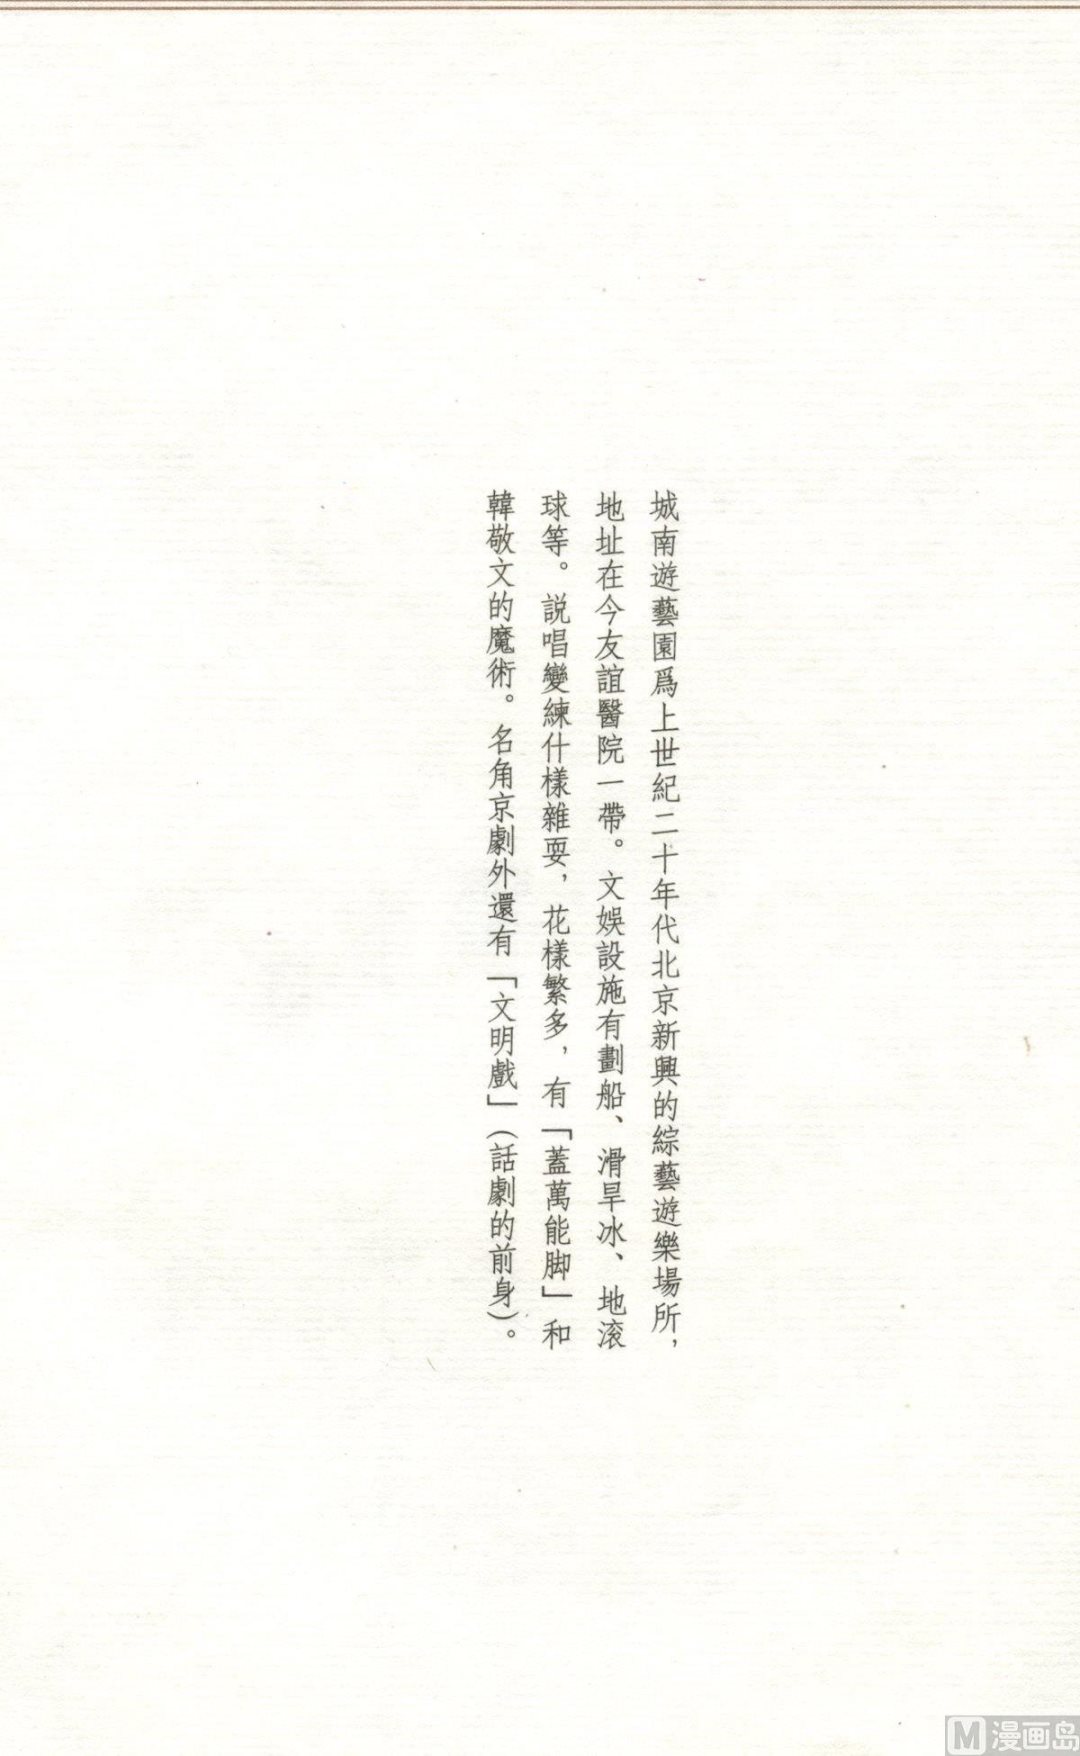 城南遊藝園爲上世紀二十年代北京新興的綜藝遊樂場所，
地址在今友誼醫院一帶。文娛設施有劃船、滑旱冰、地滚
球等。説唱變練什樣雜耍，花樣繁多，有「蓋萬能脚」和
韓敬文的魔術。名角京劇外還有「文明戲」（話劇的前身）。
M漫画岛